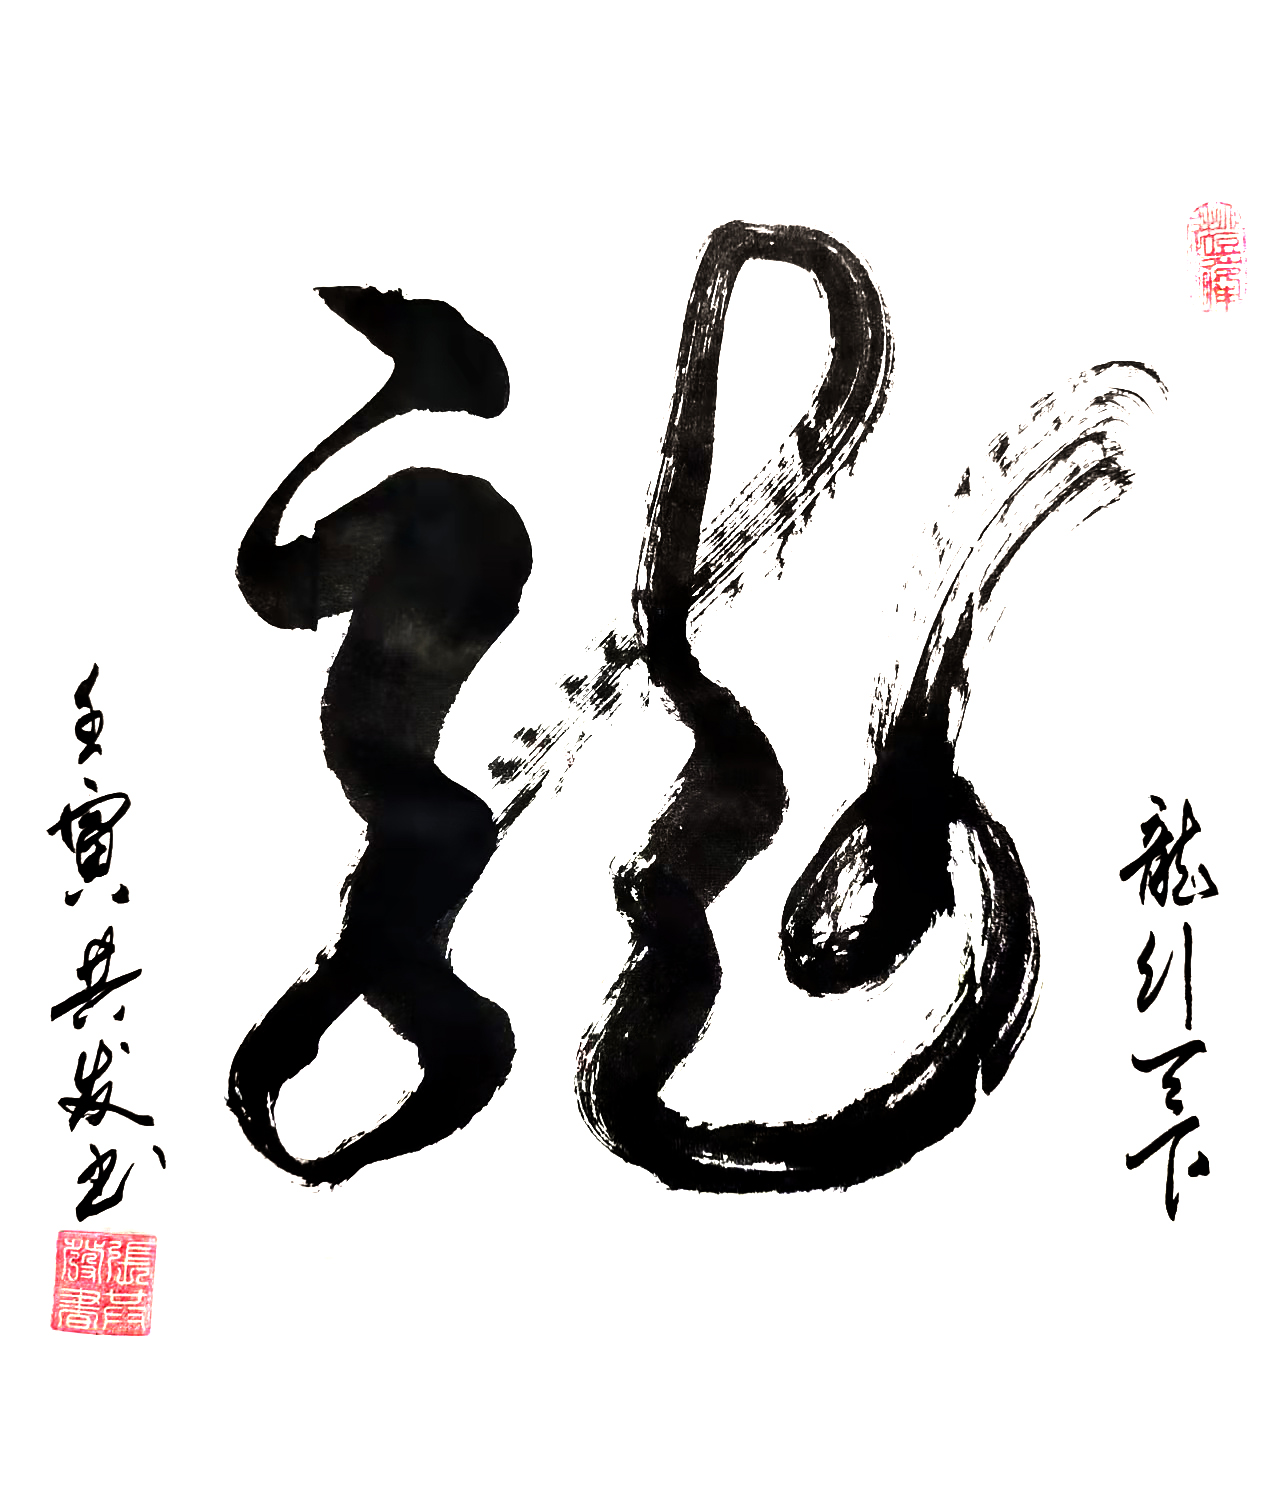 龍
龍行天下
壬寅其发书
張其
發書